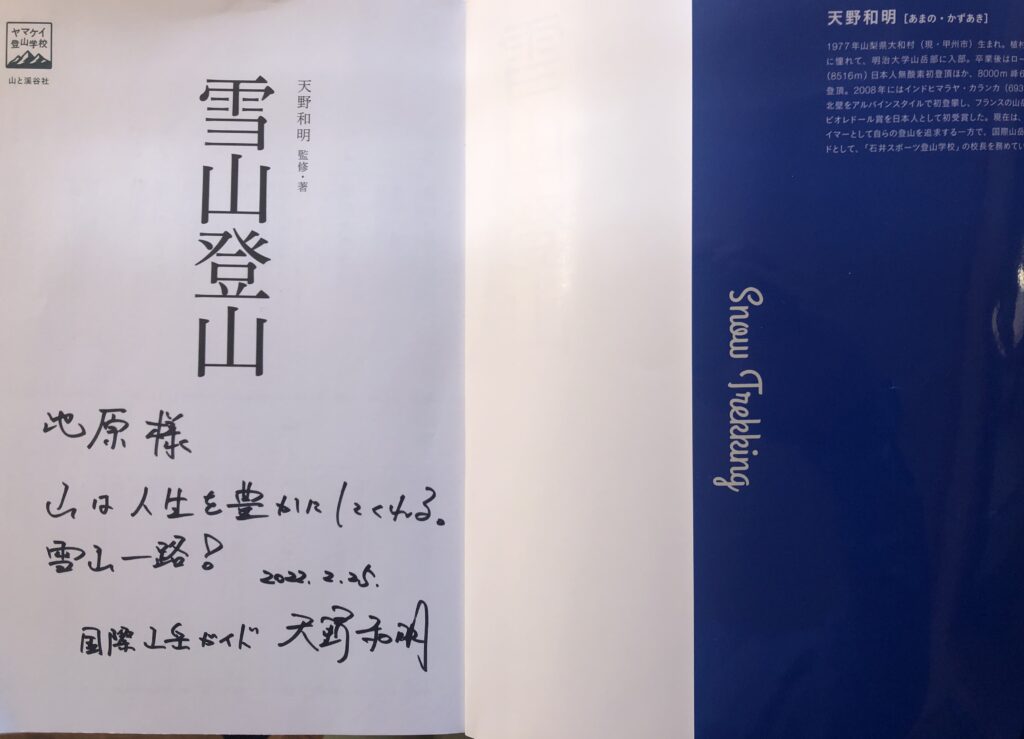 ヤマケイ
登山学校
山と溪谷社
天野和明 監修・著
雪山登山
地原様
山は人生を豊かにしてくれる。
雪山一路!
2022.2.25.
国際山岳ガイド 天野和明
天野和明[あまの・かずあき]
1977年山梨県大和村(現・甲州市)生まれ。植村
に憧れて、明治大学山岳部に入部。卒業後はロー
(8516m)日本人無酸素初登頂ほか、8000m峰6
登頂。2008年にはインドヒマラヤ・カランカ(693
北壁をアルパインスタイルで初登攀し、フランスの山岳
ピオレドール賞を日本人として初受賞した。現在は、
イマーとして自らの登山を追求する一方で、国際山岳
ドとして、「石井スポーツ登山学校」の校長を務めてい
Snow Trekking